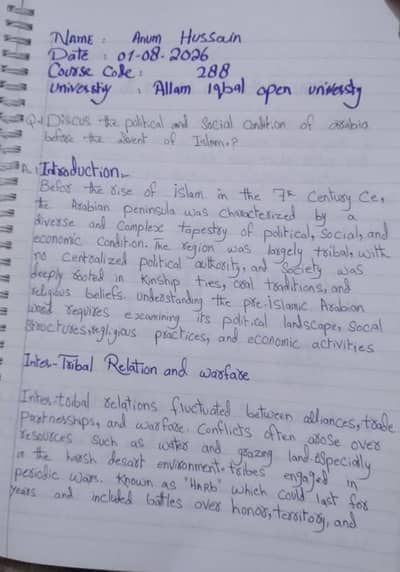 NAME : Anum Hussain
Date : 01-08-2026
Course Code : 288
University : Allam Iqbal open university
Q:1 Discus the political and Social Condition of arabia
before the advent of Islam.?
A: Introduction:-
Befor the rise of islam in the 7th Century Ce,
the Arabian peninsula was characterized by a
diverse and Complex tapestry of political, social, and
economic condition. The region was largely tribal, with
no centralized political authority, and society was
deeply rooted in kinship ties, oral traditions, and
religous beliefs. Understanding the pre-islamic Arabian
world requires examining its political landscape, Social
Structures, regligious practices, and economic activities
Inter-Tribal Relation and warfare
Inter-tribal relations fluctuated between alliances, trade
Partnerships, and warfare. Conflicts often arose over
resources such as water and grazing land. especially
in the harsh desart environment. tribes engaged in
periodic wars. Known as "HARb" which could last for
years and included battles over honor, territory, and